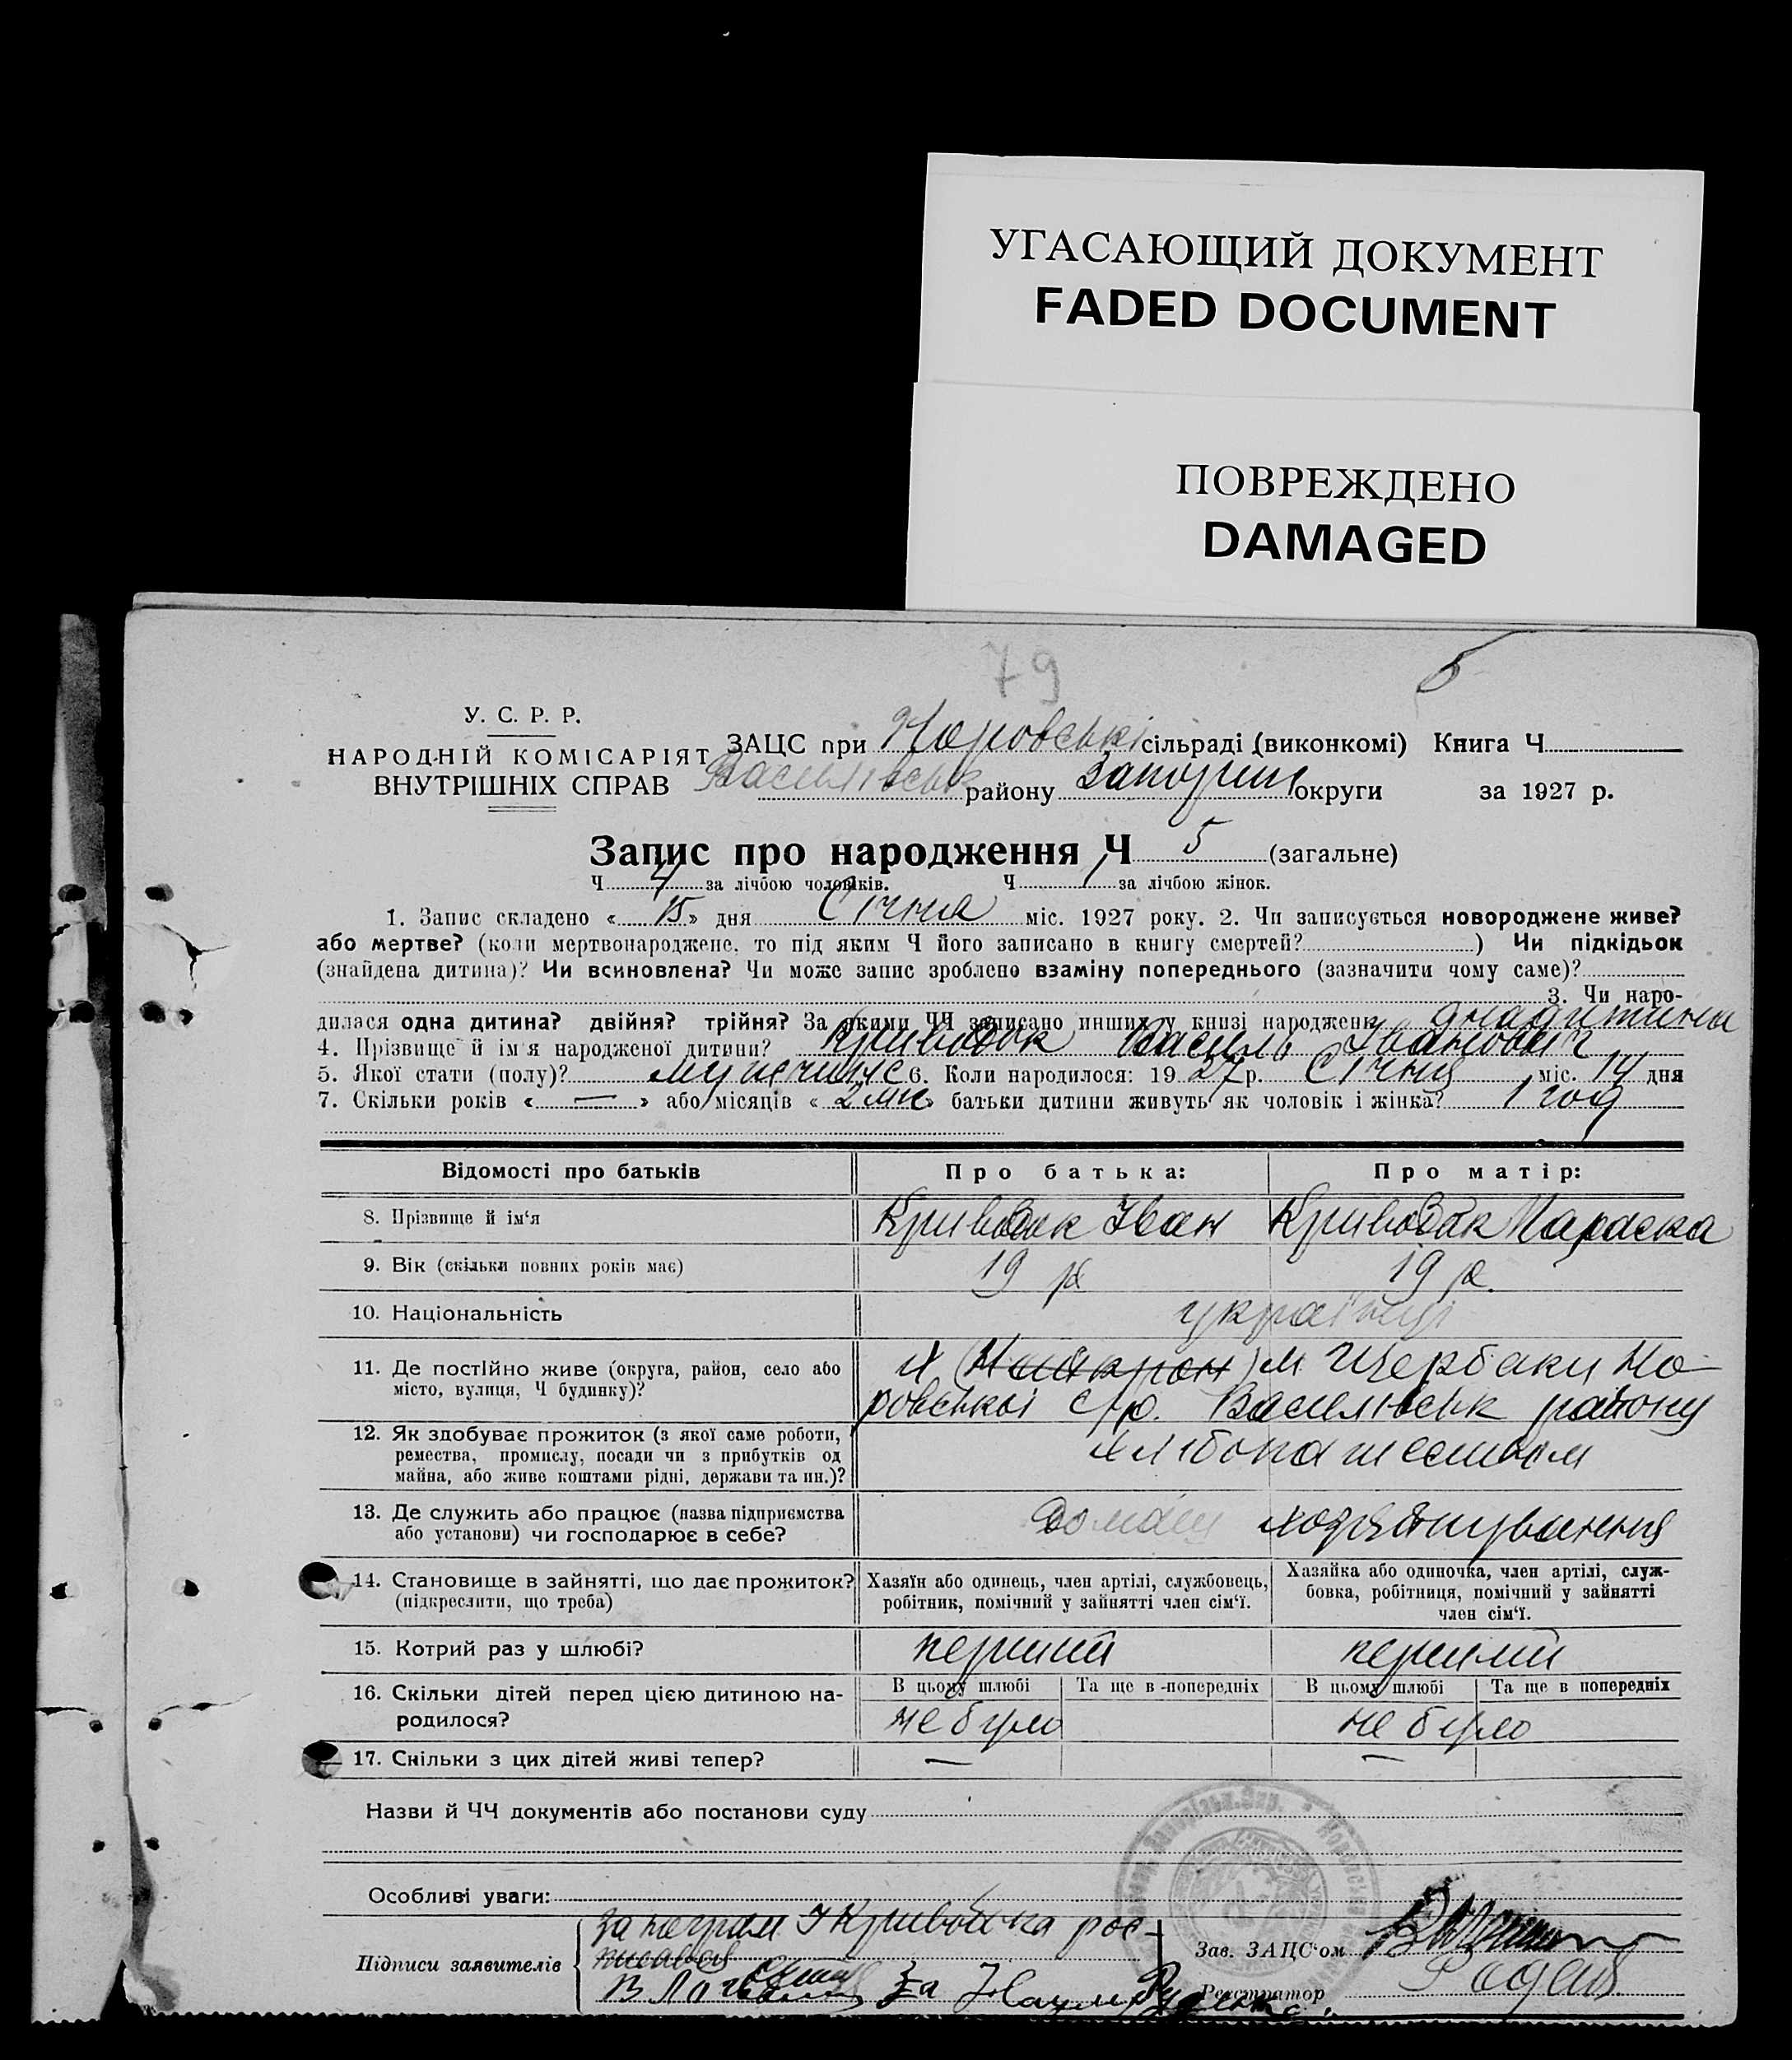 УГАСАЮЩИЙ ДОКУМЕНТ
FADED DOCUMENT
ПОВРЕЖДЕНО
DAMAGED
79
5
У. С. Р. Р.
НАРОДНІЙ КОМІСАРІЯТ
ВНУТРІШНІХ СПРАВ
ЗАЦС при сільраді (виконкомі) Книга Ч
Василівськ району Запоріж округи за 1927 р.
Запис про народження Ч 5 (загальне)
Ч 4 за лічбою чоловіків. Ч 1 за лічбою жінок.
1. Запис складено « 15 » дня Січня міс. 1927 року. 2. Чи записується новороджене живе?
або мертве? (коли мертвонароджене, то під яким Ч його записано в книгу смертей? ) Чи підкідьок
(знайдена дитина)? Чи всиновлена? Чи може запис зроблено взаміну попереднього (зазначити чому саме)?
3. Чи наро-
дилася одна дитина? двійня? трійня? За якими ЧЧ записано инших у книзі народжень
4. Прізвище й ім'я народженої дитини? Кривобок Василь Іванович
5. Якої стати (полу)? 6. Коли народилося: 19 27 р. Січня міс. 14 дня
7. Скільки років « — » або місяців « » батьки дитини живуть як чоловік і жінка? 1 год
Відомості про батьків Про батька: Про матір:
8. Прізвище й ім'я Кривобок Іван Кривобок Параска
9. Вік (скільки повних років має) 19 р 19 р.
10. Національність українці
11. Де постійно живе (округа, район, село або місто, вулиця, Ч будинку)? х м Щербаки
ровської с/р. Василівськ району
12. Як здобуває прожиток (з якої саме роботи, ремества, промислу, посади чи з прибутків од майна, або живе коштами рідні, держави та ин.)? хлібопашеством
13. Де служить або працює (назва підприємства або установи) чи господарює в себе? домаш
14. Становище в зайнятті, що дає прожиток? (підкреслити, що треба)
Хазяїн або одинець, член артілі, службовець, робітник, помічний у зайнятті член сім'ї.
Хазяйка або одиночка, член артілі, служ-
бовка, робітниця, помічний у зайнятті
член сім'ї.
15. Котрий раз у шлюбі? перший перший
16. Скільки дітей перед цією дитиною на-
родилося?
В цьому шлюбі Та ще в попередніх В цьому шлюбі Та ще в попередніх
не було не було
17. Скільки з цих дітей живі тепер? — —
Назви й ЧЧ документів або постанови суду
Особливі уваги:
за неграм І Кривобока рос-
писався
Підписи заявителів
Зав. ЗАЦС'ом
Реєстратор